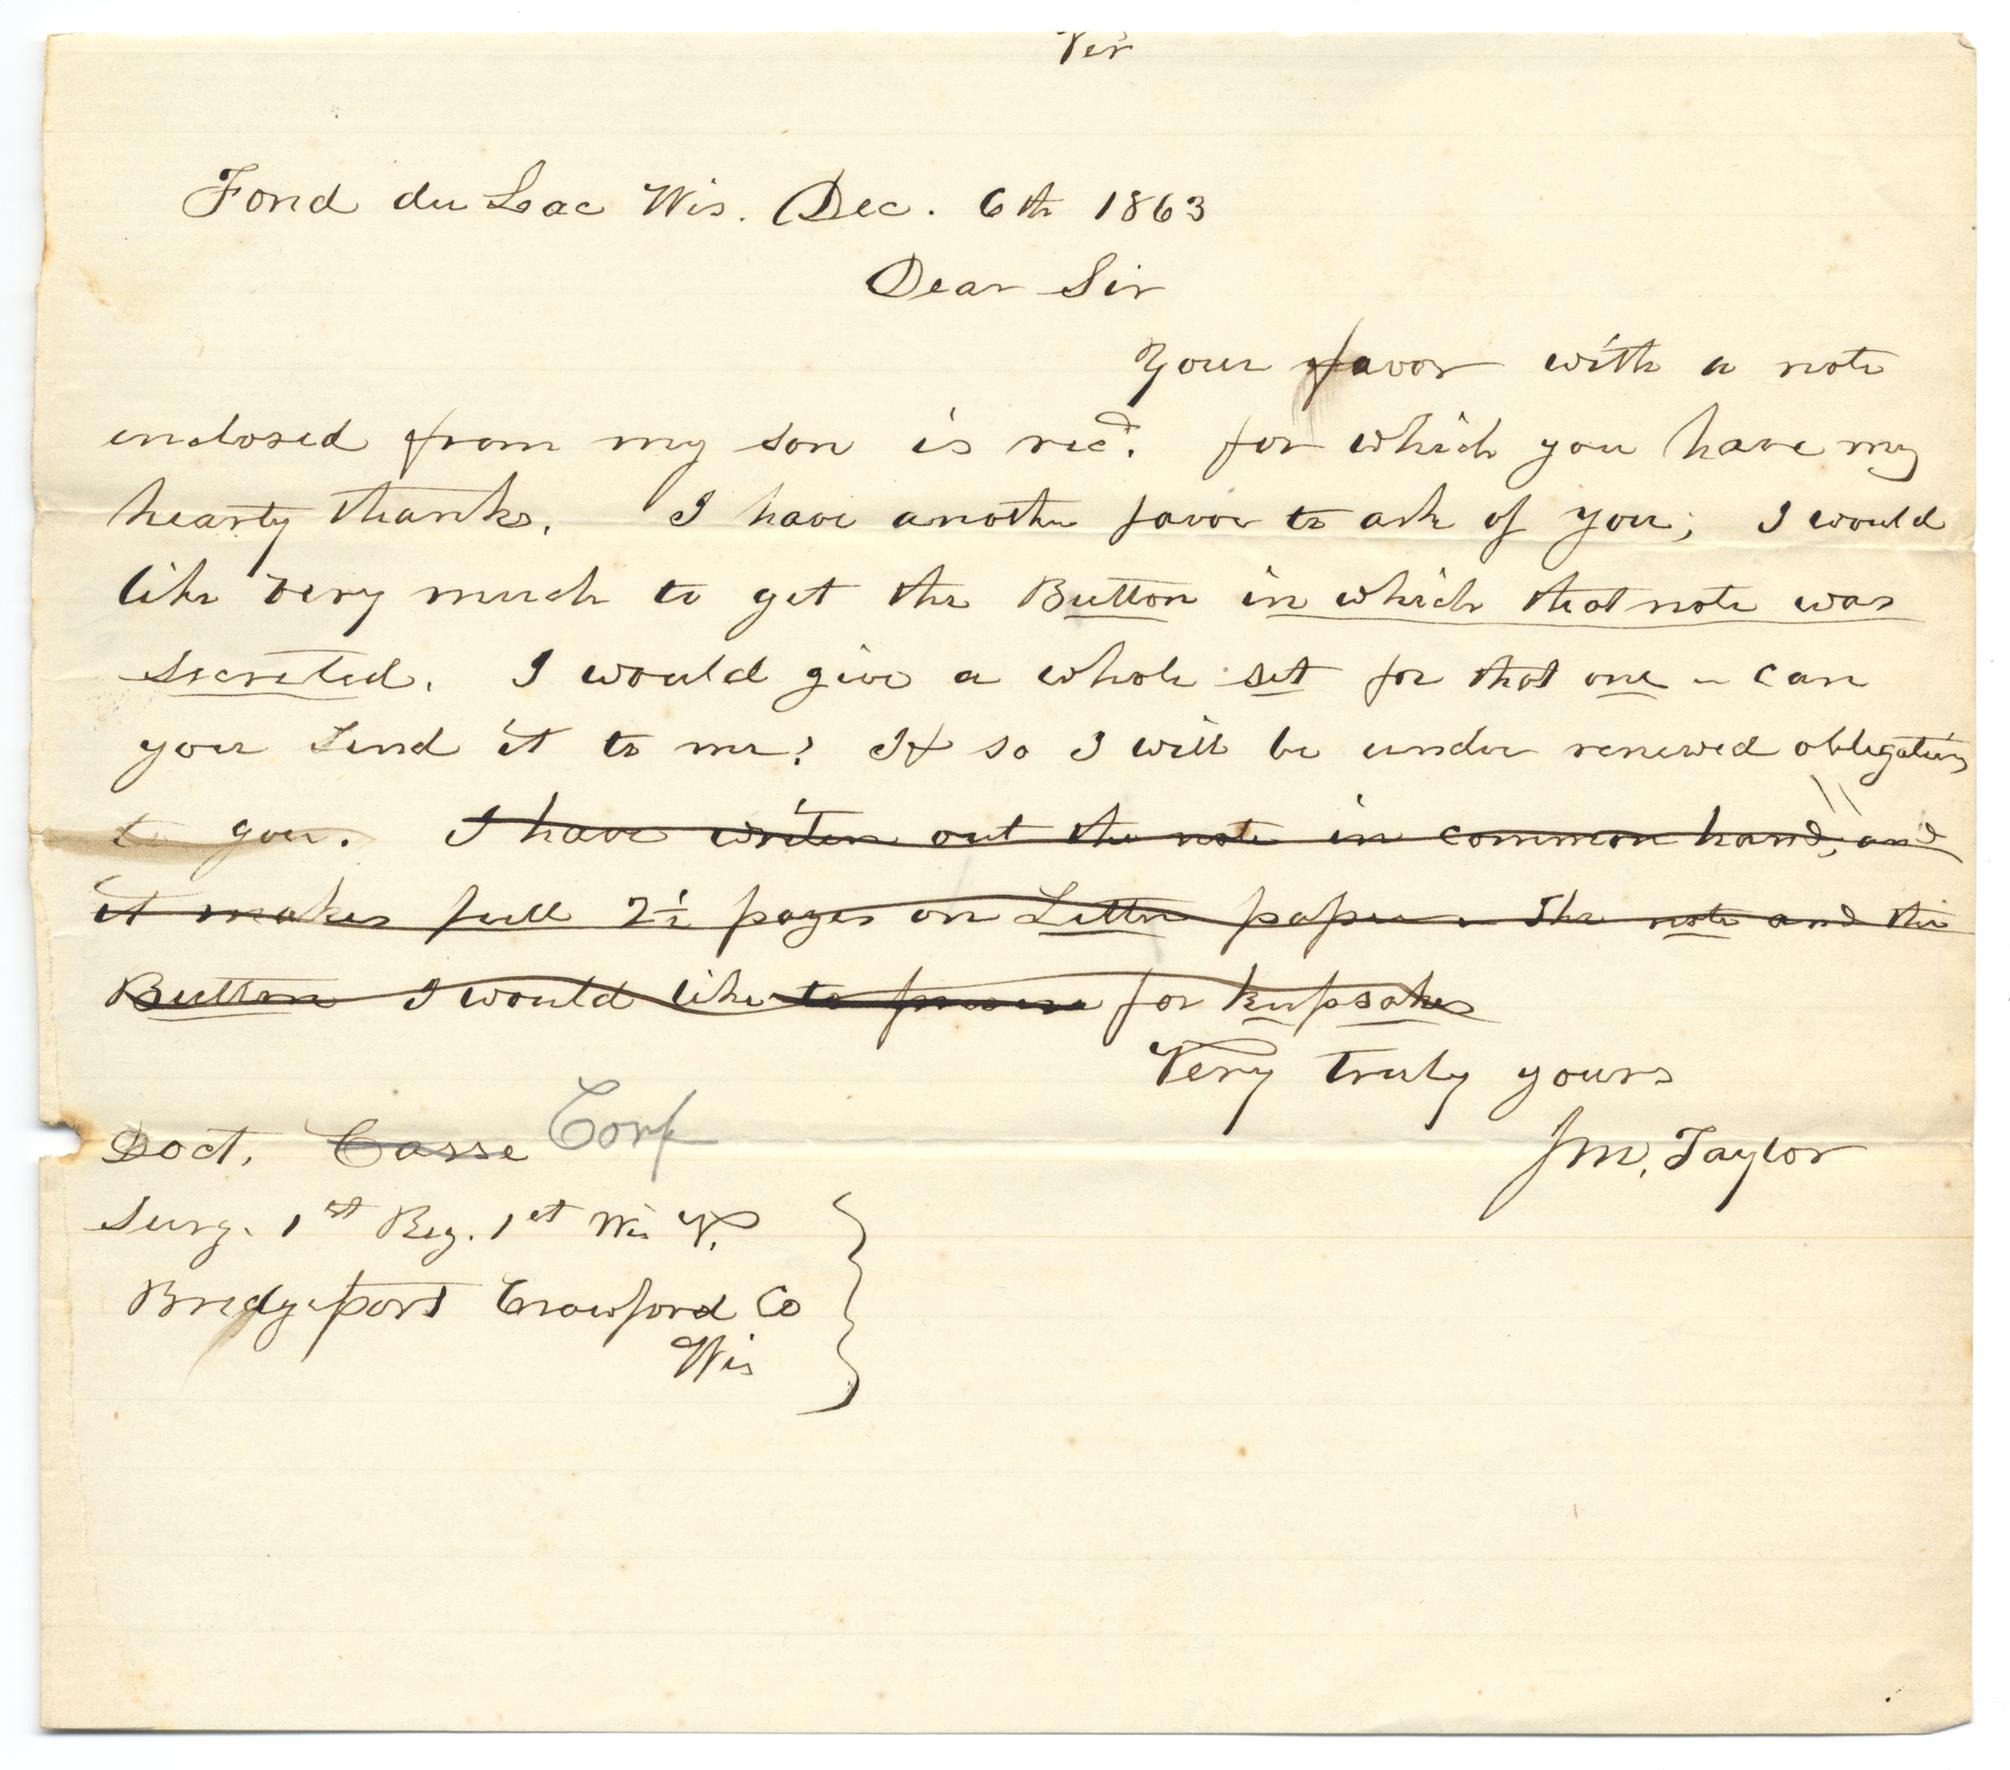 Ver
Fond du Lac Wis. Dec. 6th 1863
Dear Sir
Your favor with a note
enclosed from my son is recd. for which you have my
hearty thanks. I have another favor to ask of you; I would
like very much to get the Button in which that note was
secreted. I would give a whole set for that one - can
you send it to me? If so I will be under renewed obligations
to you. I have writen out the note in common hand, and
it makes full 2½ pages on Letter paper - The note and the
Button I would like to preserve for keepsakes
Very truly yours
Doct. Casse Corp
J M. Taylor
Surg. 1st Reg. 1st Wis V.
Bridgeport Crawford Co
Wis